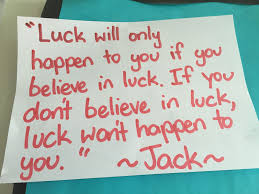 "Luck will only
happen to you if you
believe in luck. If you
don't believe in luck,
luck won't happen to
you. " ~Jack~